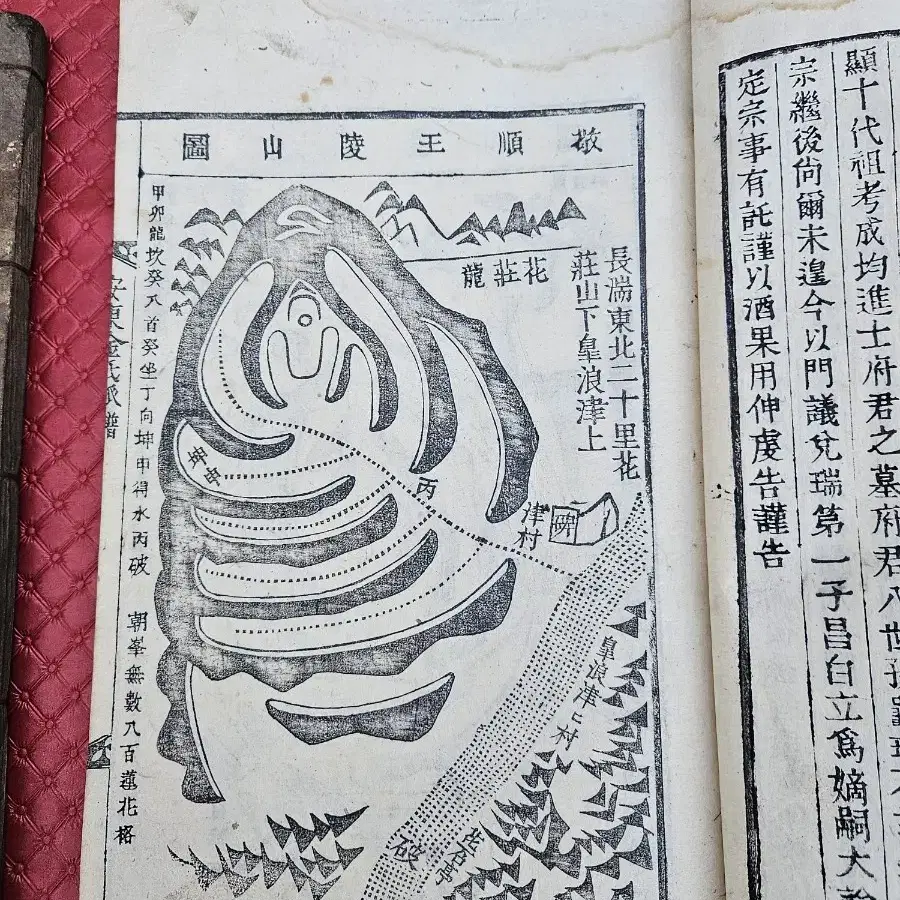 顯十代祖考成均進士府君之墓府君八世孫
宗繼後尙爾未遑今以門議兌瑞第一子昌白立爲嫡嗣大
定宗事有託謹以酒果用伸虔告謹告
敬順王陵山圖
長湍東北二十里花
莊山下皇浪津上
花莊龍
丙
碑
津村
皇浪津上村
破
甲卯龍坎癸入首癸坐丁向坤申得水丙破 朝峯無數八百蓮花格
金氏派譜